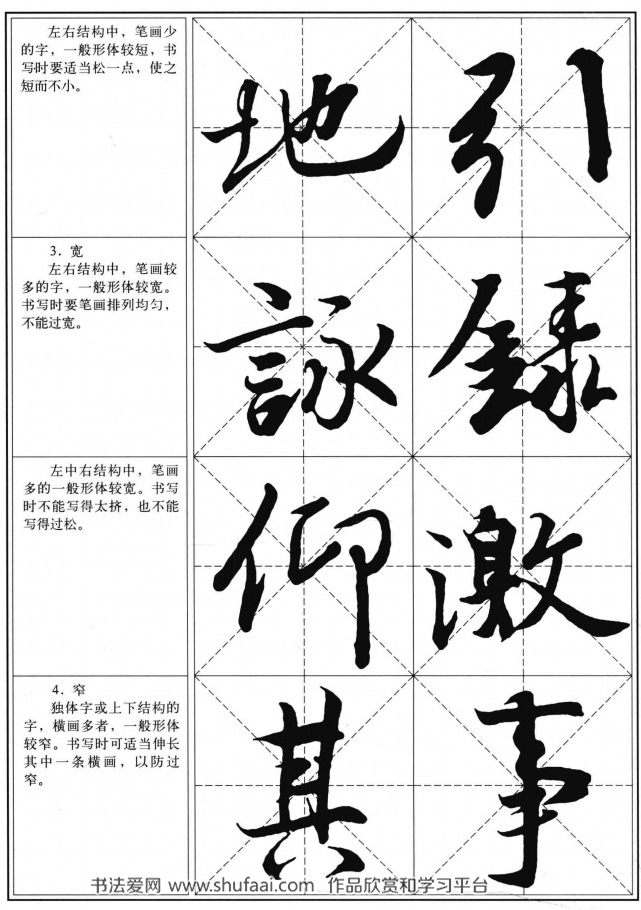 左右结构中，笔画少
的字，一般形体较短，书
写时要适当松一点，使之
短而不小。
地引
3．宽
左右结构中，笔画较
多的字，一般形体较宽。
书写时要笔画排列均匀，
不能过宽。
詠録
左中右结构中，笔画
多的一般形体较宽。书写
时不能写得太挤，也不能
写得过松。
仰激
4．窄
独体字或上下结构的
字，横画多者，一般形体
较窄。书写时可适当伸长
其中一条横画，以防过
窄。
其事
书法爱网 www.shufaai.com 作品欣赏和学习平台